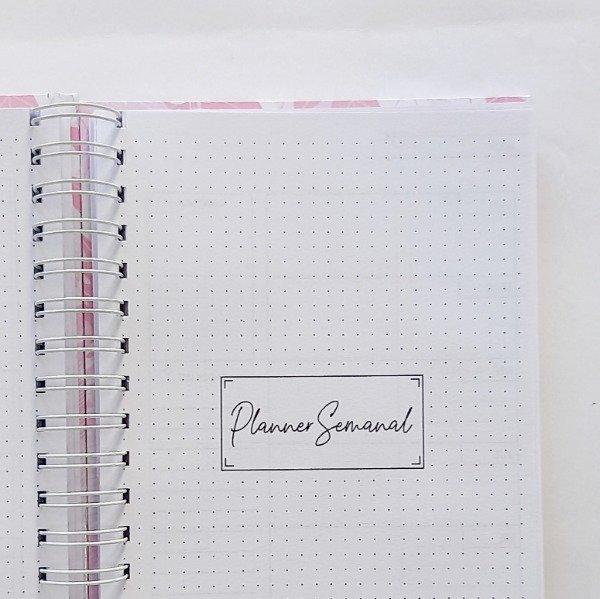 Planner Semanal